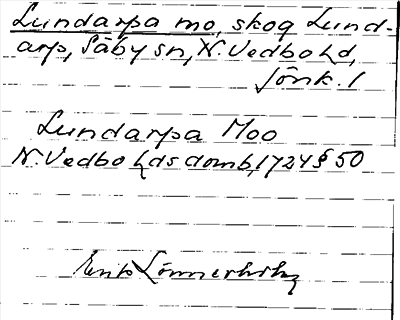 Lundarpa mo, skog Lund-
arp, Säby sn, N. Vedbo hd,
Jönk. l
Lundarpa Moo
N. Vedbo hds domb, 1724 § 50